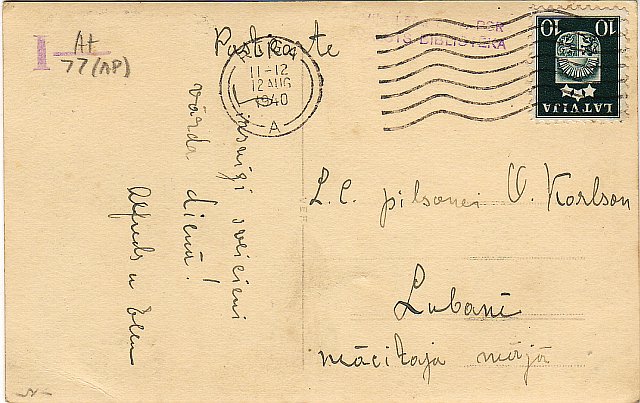 I At
77(AP)
Pastkarte
11-12
12 AUG
1940
A
BIBLIOTEKA
10 10
LATVIJA
Sirsnīgi sveicieni
vārda dienā!
Alfreds u
L. C. pilsonei O. Korlson
Lubānē
mācītāja mājā